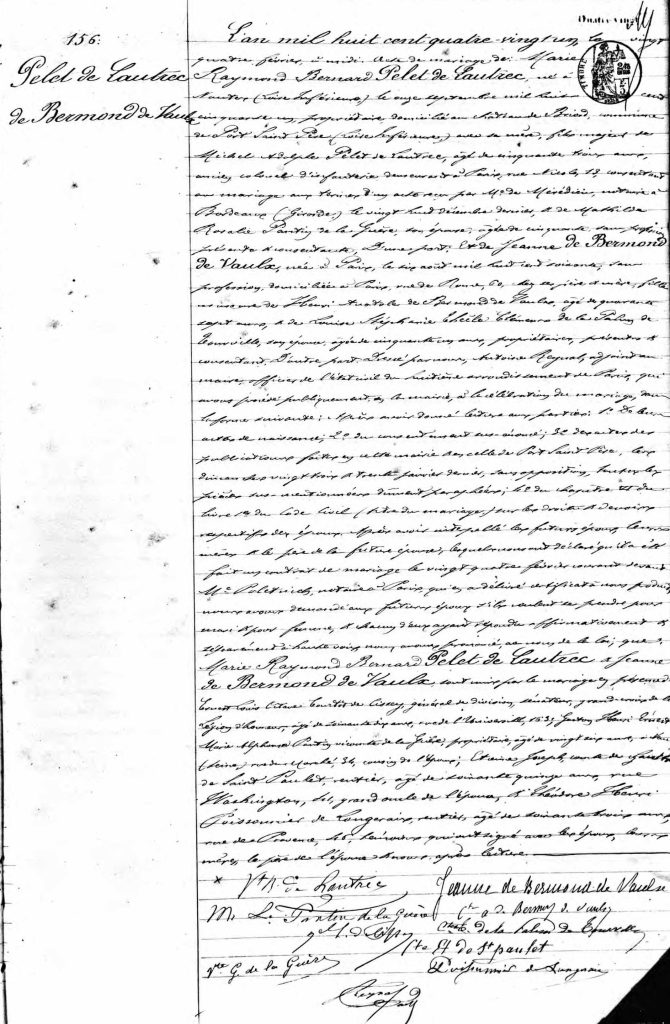 156.
Pelet de Lautrec
de Bermond de Vaulx
L'an mil huit cent quatre vingt un, le vingt
quatre février, à midi. Acte de mariage de: Marie
Raymond Bernard Pelet de Lautrec, né à
Nantes (Loire Inférieure) le onze septembre mil huit cent
cinquante un, propriétaire, domicilié au château de Briord, commune
de Port Saint Père (Loire Inférieure) avec sa mère, fils majeur de
Michel Adolphe Pelet de Lautrec, âgé de cinquante trois ans,
ancien colonel d'infanterie demeurant à Paris, rue Nicolo, 12, consentant
au mariage aux termes d'un acte reçu par Me de Mérédieu, notaire à
Bordeaux (Gironde) le vingt huit décembre dernier, & de Mathilde
Rosalie Pantin de la Guère, son épouse, âgée de cinquante, sans profession
présente & consentante, D'une part. Et de Jeanne de Bermond
de Vaulx, née à Paris, le six août mil huit cent soixante, sans
profession, domiciliée à Paris, rue de Rome, 60, chez ses père & mère, fille
mineure de Henri Anatole de Bermond de Vaulx, âgé de quarante
sept ans, & de Louise Stéphanie Cécile Clémence de la Palun de
son épouse, âgée de cinquante un ans, propriétaires, présents &
consentant. D'autre part. Dressé par nous, Antoine Raynal, adjoint au
maire, officier de l'état civil du huitième arrondissement de Paris, qui
avons procédé publiquement, en la mairie, à la célébration du mariage, dans
la forme suivante: Après avoir donné lecture aux parties: 1° De leurs
actes de naissance; 2° du consentement sus-énoncé; 3° des actes des
publications faites en cette mairie & en celle de Port Saint Père, les
dimanches vingt trois & trente janvier dernier, sans opposition, toutes les
pièces sus-mentionnées dûment paraphées; 4° du chapitre VI du
livre 1er du Code Civil (titre du mariage) sur les droits & devoirs
respectifs des époux. Après avoir interpellé les futurs époux, leurs
mères & le père de la future épouse, lesquels nous ont déclaré qu'il a été
fait un contrat de mariage le vingt quatre février courant devant
Me notaire à Paris, qui en a délivré certificat à nous produit
nous avons demandé aux futurs époux s'ils veulent se prendre pour
mari & pour femme, & chacun d'eux ayant répondu affirmativement &
séparément à haute voix, nous avons prononcé, au nom de la loi, que:
Marie Raymond Bernard Pelet de Lautrec & Jeanne
de Bermond de Vaulx, sont unis par le mariage, en présence de
Ernest Louis Octave Courtot de Cissey, général de division, sénateur, grand croix de la
Légion d'honneur, âgé de soixante dix ans, rue de l'Université, 153; Gaston Henri Ernest
Marie Alphonse Pantin vicomte de la Guère, propriétaire, âgé de vingt six ans, à
(Seine) rue de 34, cousin de l'époux; Joseph, comte de
de Saint Paulet, rentier, âgé de soixante quinze ans, rue
Washington, grand oncle de l'épouse, & Théodore Henri
Poissonnier de Longerais, rentier, âgé de soixante trois ans
rue de Provence, 46, témoins qui ont signé avec les époux, leurs
mères, le père de l'épouse & nous, après lecture.
Vte R. de Lautrec
Jeanne de Bermond de Vaulx
M. L. Pantin de la Guère
Cte A de Bermond de Vaulx
Ctesse de la Palun de
Cte de St Paulet
Vte G. de la Guère
Poissonnier de Longerais
Raynal